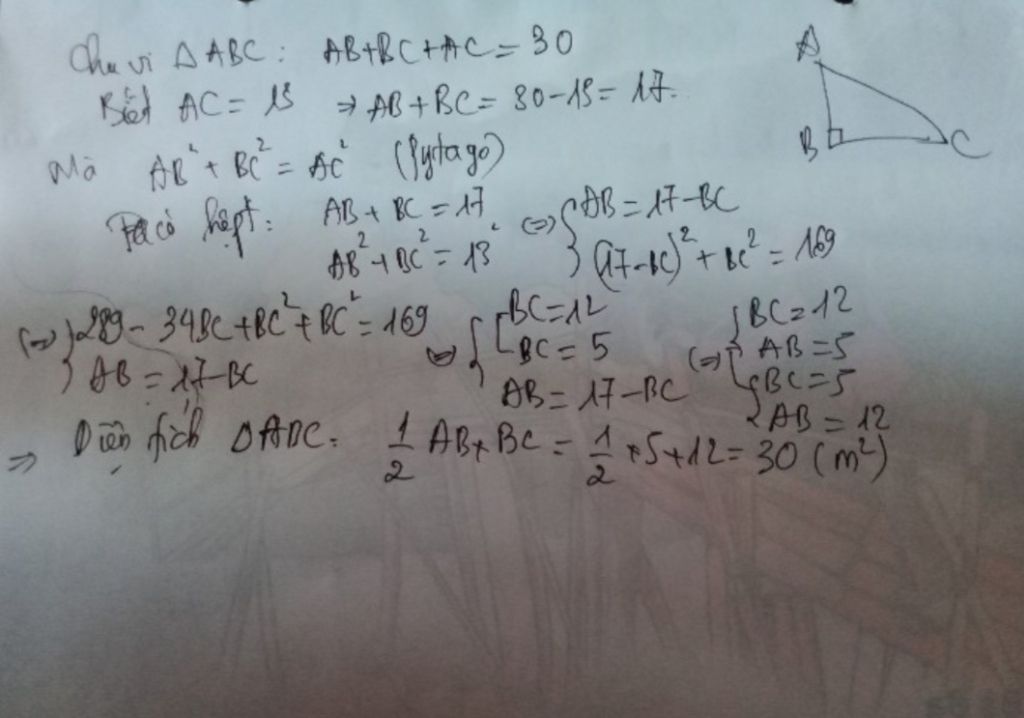 Chu vi △ABC: AB+BC+AC = 30
Biết AC = 13 ⇒ AB + BC = 30 - 13 = 17.
Mà AB² + BC² = AC² (Pytago)
Ta có hệ pt: AB + BC = 17
AB² + BC² = 13²
⇔ { AB = 17 - BC
(17 - BC)² + BC² = 169
⇔ { 289 - 34BC + BC² + BC² = 169
AB = 17 - BC
⇔ { [ BC = 12
BC = 5
AB = 17 - BC
⇔ [ { BC = 12
AB = 5
{ BC = 5
AB = 12
⇒ Diện tích △ABC: 1/2 AB × BC = 1/2 × 5 × 12 = 30 (m²)
A
B
C